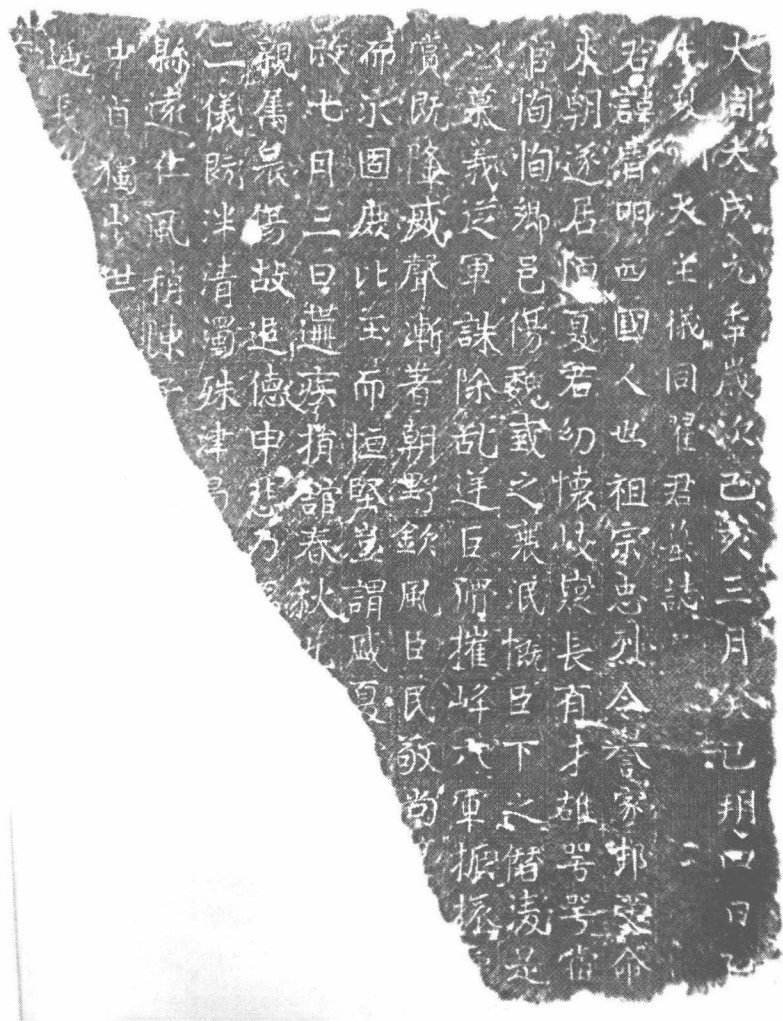 大周大成元年歲次己亥三月癸巳朔四日己
天主儀同翟君墓誌
君諱曹明西國人也祖宗忠烈令譽家邦受命
來朝遂居恒夏君幼懷岐嶷長有才雄咢咢當
官恂恂鄉邑傷魏載之衰泯慨臣下之僭淩是
以慕義從軍誅除乱逆巨猾摧峰六軍振振
賞既隆威聲漸著朝野欽風臣民敬尚
而永固鹿比玉而恒堅豈謂戚夏
改七月三日遘疾捐館春秋
親屬哀傷故追德申悲乃
二儀既泮清濁殊津
縣遠仁風稍陳
世